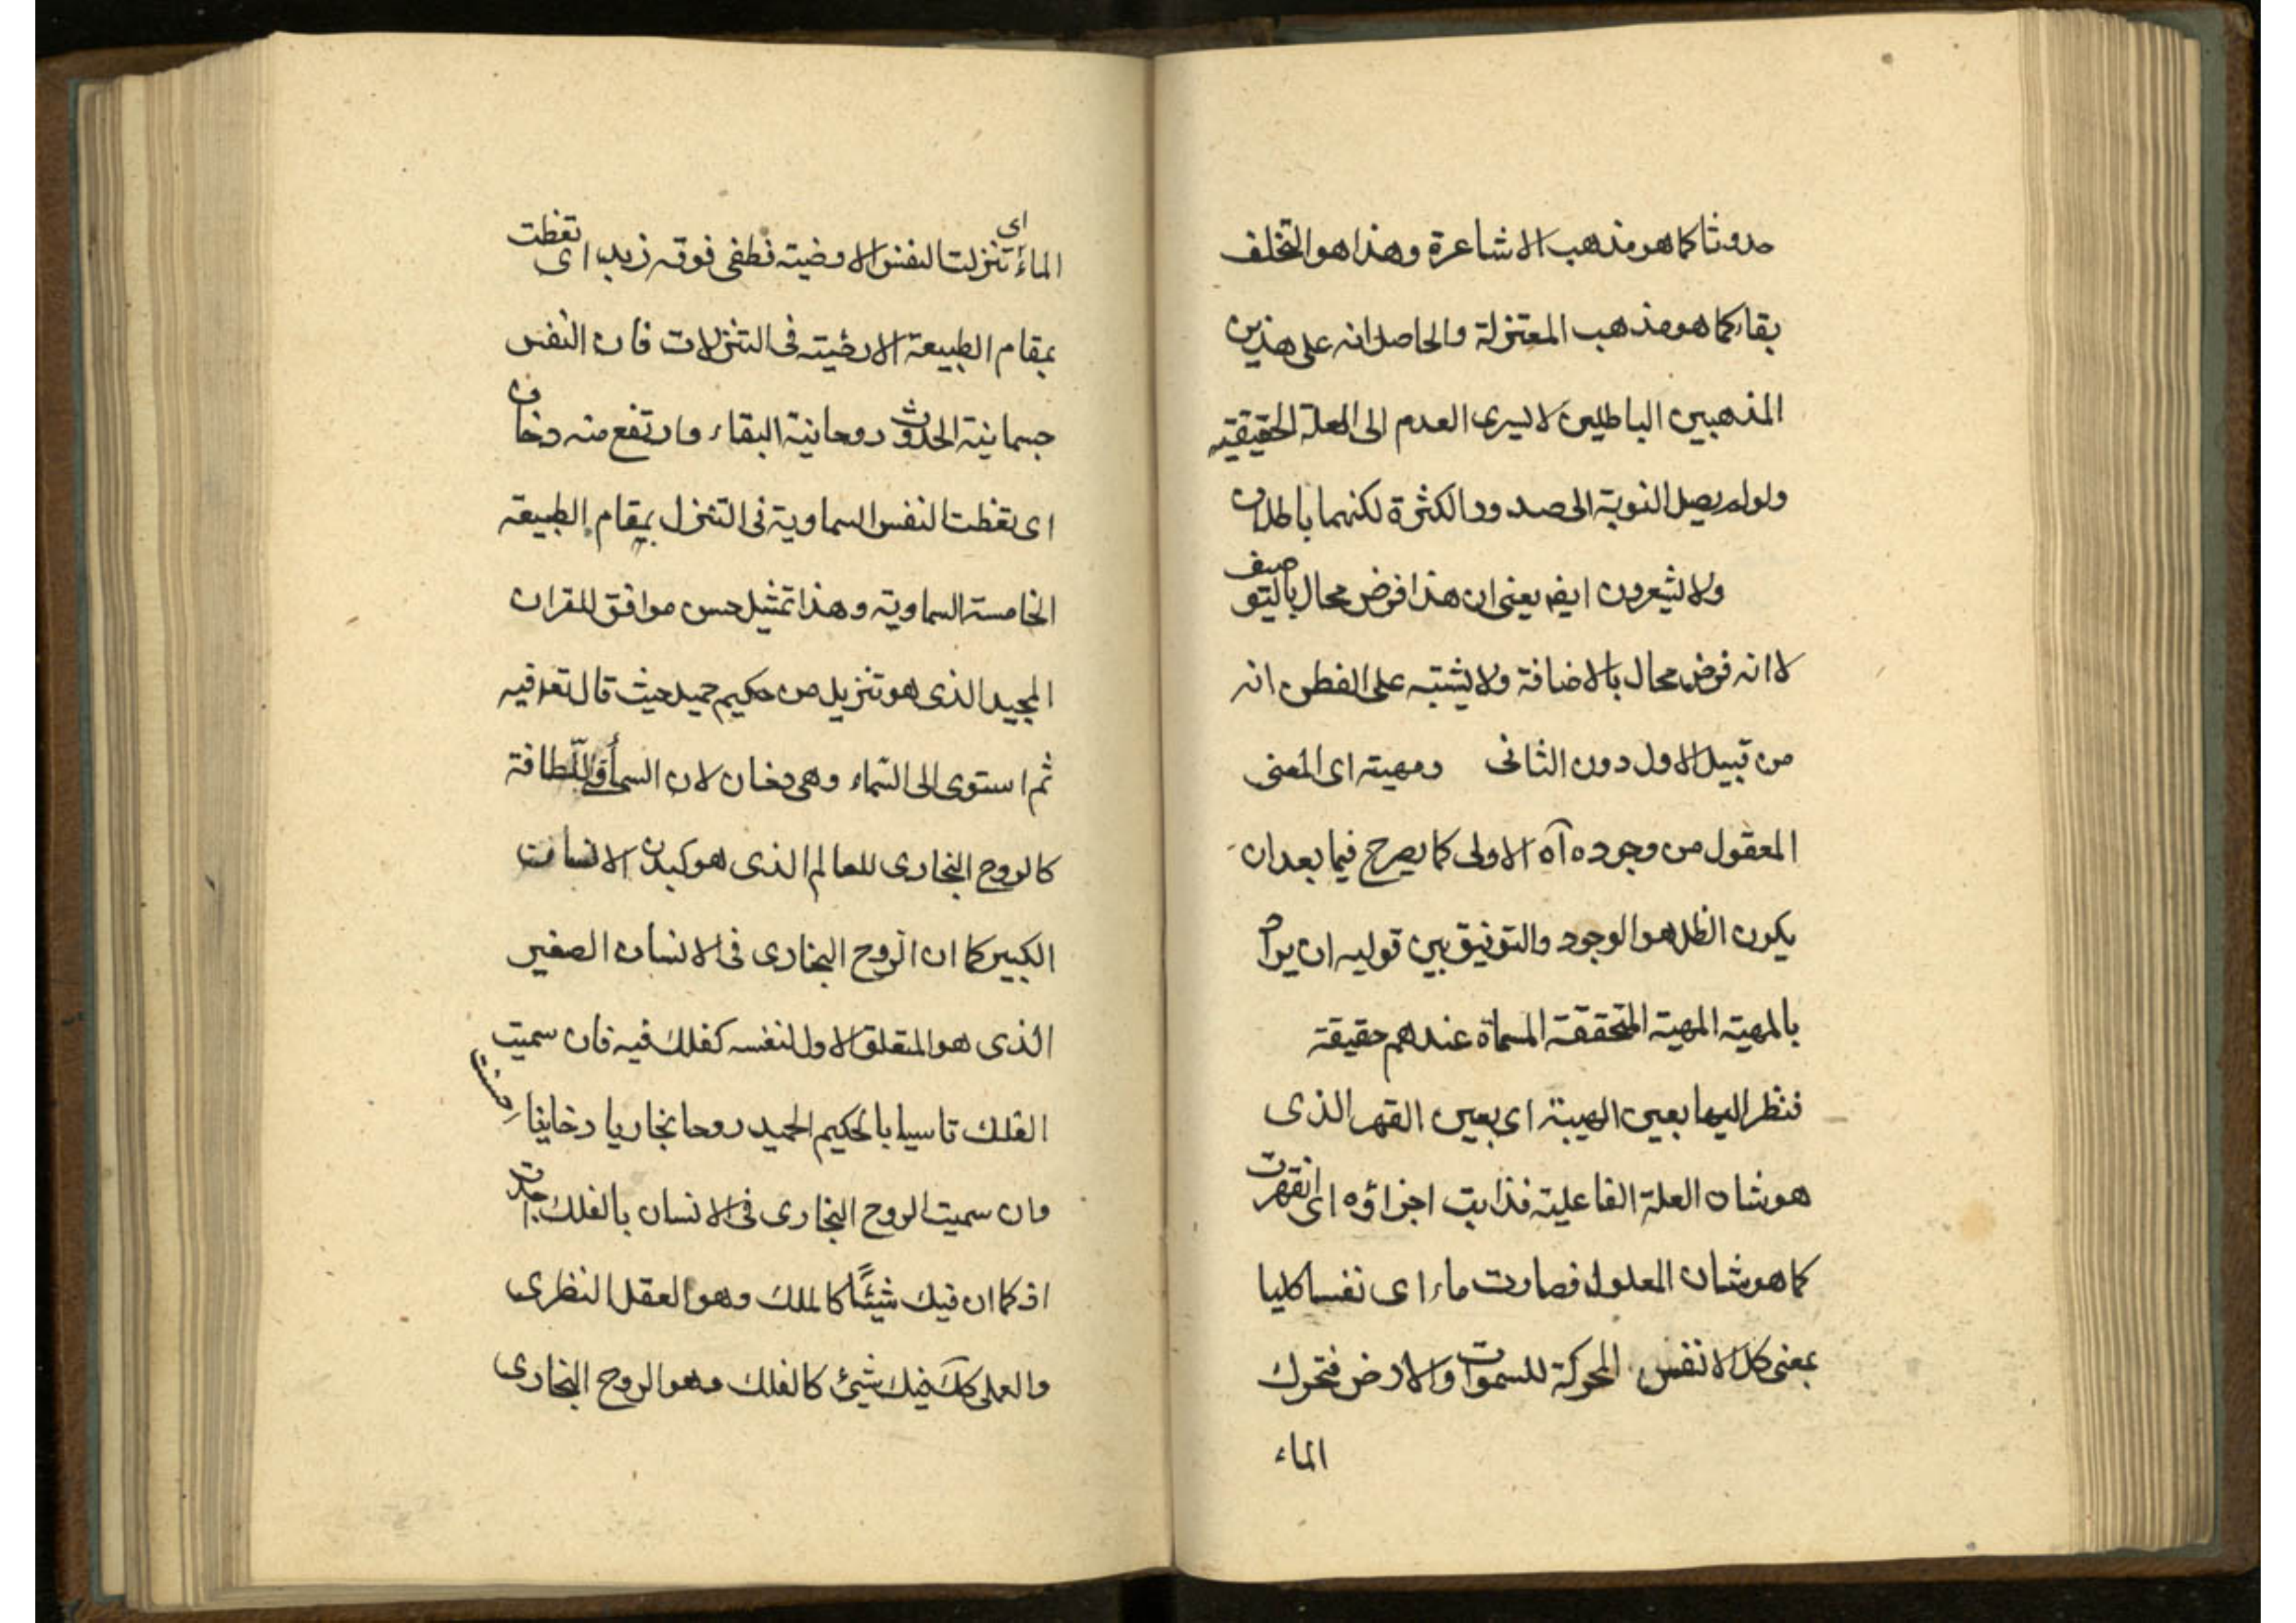 حدوثا كما هو مذهب الاشاعرة وهذا هو التخلف
بقاء كما هو مذهب المعتزلة والحاصل انه على هذين
المذهبين الباطلين لا يسرى العدم الى العلة الحقيقيه
ولو لم يصل النوبة الى صدور الكثرة لكنهما باطلان
ولا يشعرون ايضا يعنى ان هذا فرض محال بالتوصيف
لا انه فرض محال بالاضافة ولا يشتبه على الفطن انه
من قبيل الاول دون الثانى ومهيته اى المعنى
المعقول من وجوده آه الاولى كما يصرح فيما بعد ان
يكون الظل هو الوجود والتوفيق بين قوليه ان يراد
بالمهية المهية المتحققة المسماة عندهم حقيقة
فنظر اليها بعين الهيبة اى بعين القهر الذى
هو شان العلة الفاعلية فذابت اجزاؤه اى انقهرت
كما هو شان المعلول فصارت ماء اى نفسا كليا
بمعنى كل الانفس المحركة للسموات والارض فتحرك
الماء
الماء اى تنزلت النفس الارضية فطفى فوقه زبد اى تغطت
بمقام الطبيعة الارضية فى التنزلات فان النفس
جسمانية الحدوث روحانية البقاء وارتفع منه دخان
اى تغطت النفس السماوية فى التنزل بمقام الطبيعة
الخامسة السماوية وهذا تمثيل حسن موافق للقران
المجيد الذى هو تنزيل من حكيم حميد حيث قال تعه فيه
ثم استوى الى السماء وهى دخان لان السماء فى اللطافة
كالروح البخارى للعالم الذى هو كبدن الانسان
الكبير كما ان الروح البخارى فى الانسان الصغير
الذى هو المتعلق الاول لنفسه كفلك فيه فان سميت
الفلك تاسيا بالحكيم الحميد روحا بخاريا دخانيا احسنت
وان سميت الروح البخارى فى الانسان بالفلك اجدت
اذ كما ان فيك شيئًا كالملك وهو العقل النظرى
والعملى كك فيك شيئ كالفلك وهو الروح البخارى